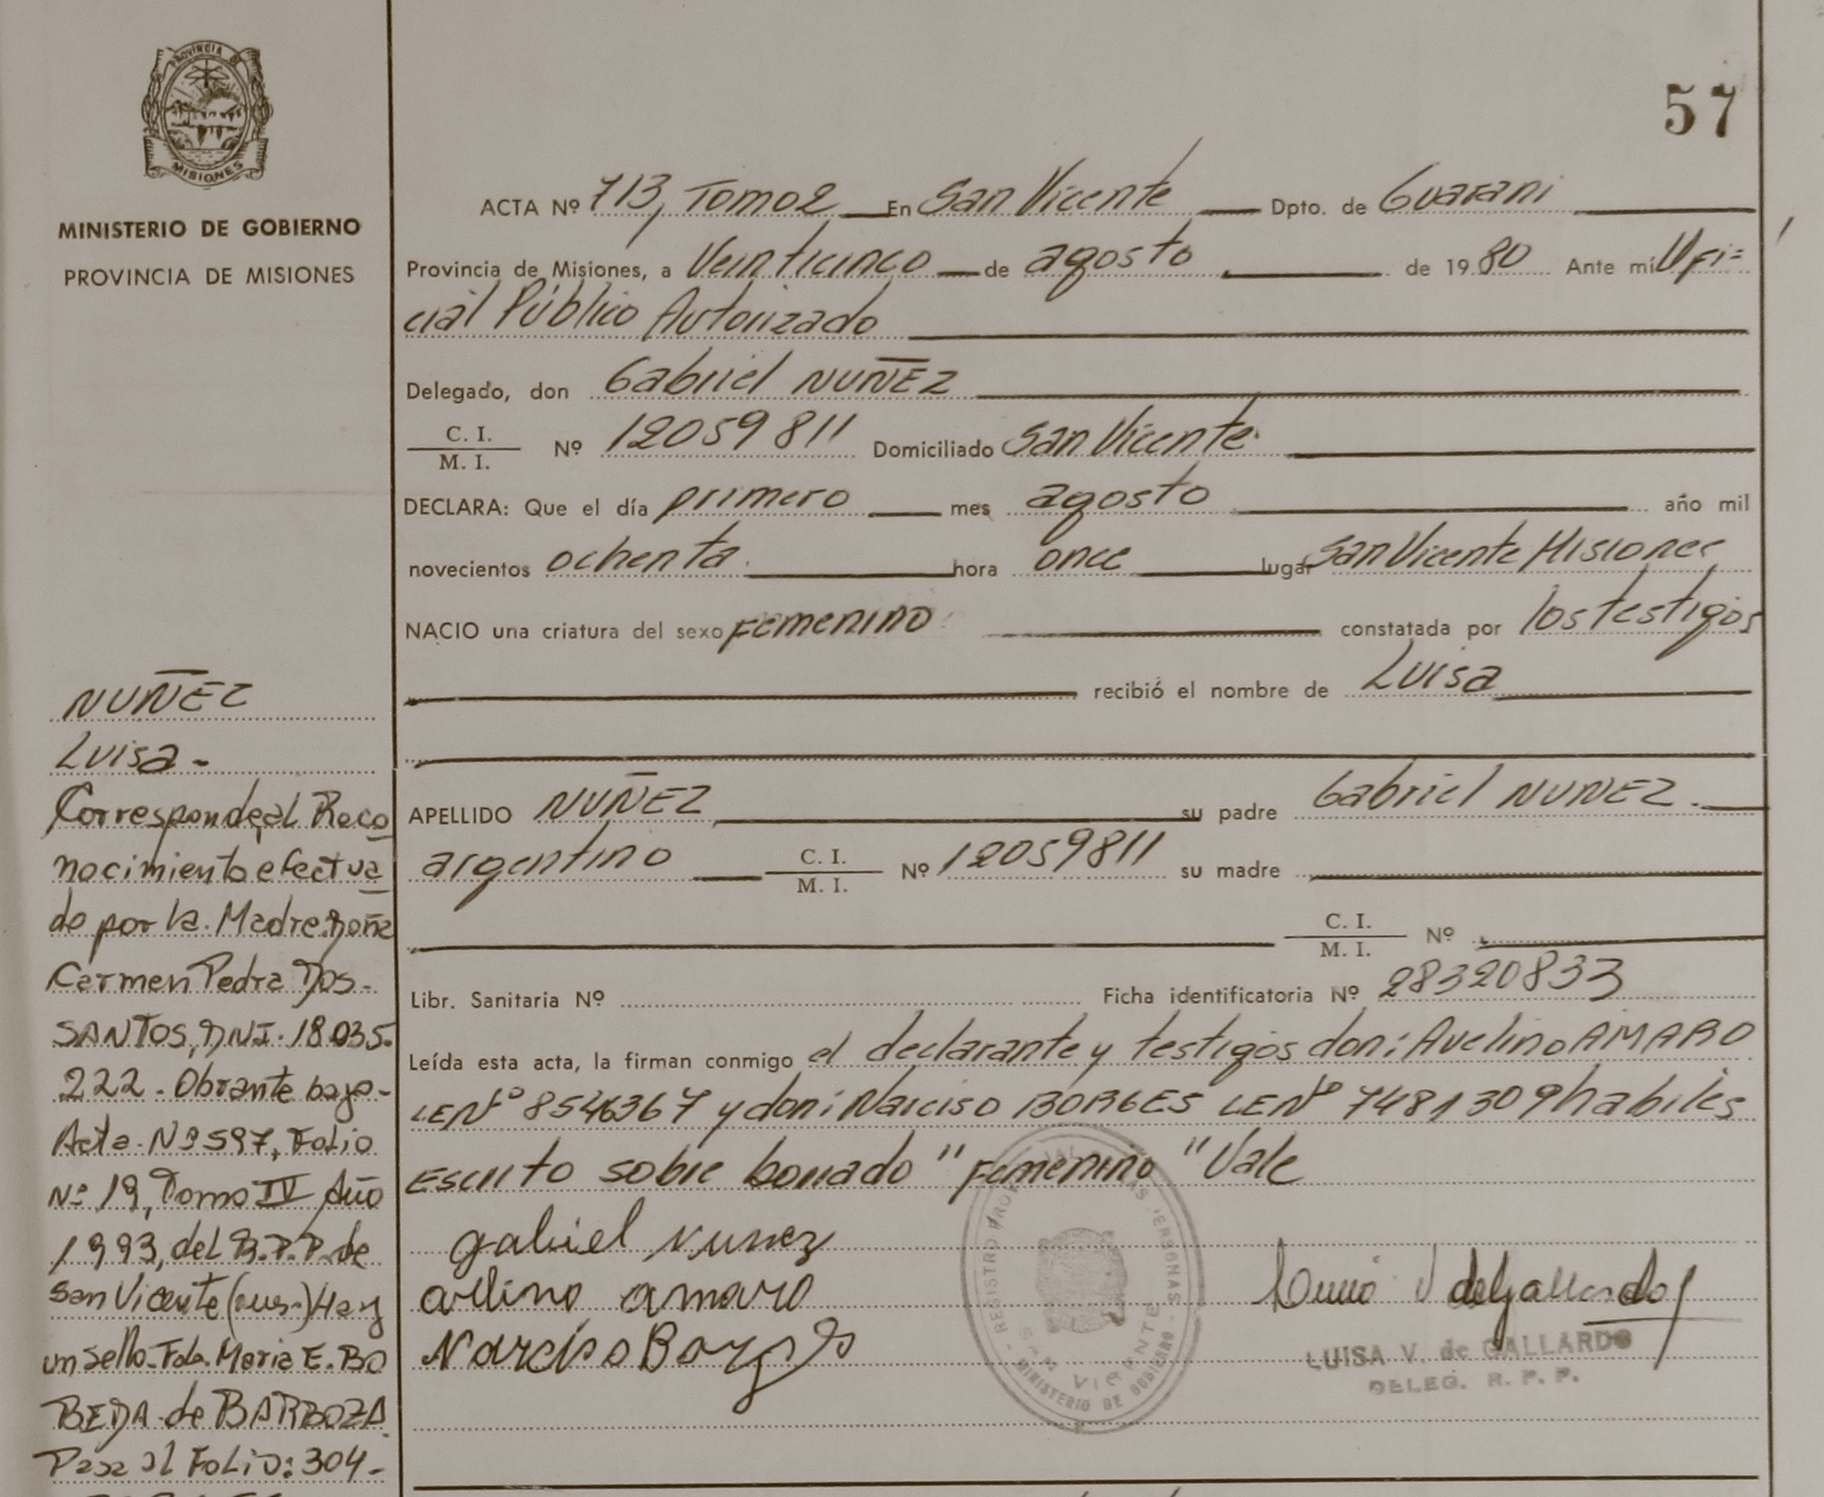 PROVINCIA DE
MISIONES
MINISTERIO DE GOBIERNO
PROVINCIA DE MISIONES
57
ACTA Nº 713, Tomo 2 En San Vicente Dpto. de Guarani
Provincia de Misiones, a Veinticinco de agosto de 1980 Ante mí Ofi=
cial Público Autorizado
Delegado, don Gabriel NUÑEZ
C. I.
M. I. Nº 12059811 Domiciliado San Vicente
DECLARA: Que el día primero mes agosto año mil
novecientos ochenta hora once lugar San Vicente Misiones
NACIO una criatura del sexo Femenino constatada por los testigos
recibió el nombre de Luisa
APELLIDO NUÑEZ su padre Gabriel NUÑEZ.
argentino C. I.
M. I. Nº 12059811 su madre
C. I.
M. I. Nº
Libr. Sanitaria Nº Ficha identificatoria Nº 28320833
Leída esta acta, la firman conmigo el declarante y testigos don: Avelino AMARO
LE Nº 8546367 y don: Narciso BORGES LE Nº 7481309 habiles
Escrito sobre borrado "Femenino" Vale
gabriel nunez
avelino amaro
Narciso Borges
REGISTRO PROVINCIAL DE LAS PERSONAS
SAN VICENTE
MINISTERIO DE GOBIERNO
LUISA V. de GALLARDO
DELEG. R. P. P.
NUÑEZ
Luisa -
Corresponde, al Reco
nocimiento efectua
do por la Madre doña
Carmen Pedra Dos-
SANTOS, DNI. 18.035.
222 - Obrante bajo-
Acta Nº 597, Folio
Nº 19, Tomo IV Año
1993, del R.P.P. de
San Vicente (Mnes.) Hay
un sello - Fdo. Maria E. BO
BEDA de BARBOZA
Pasa al Folio: 304 -